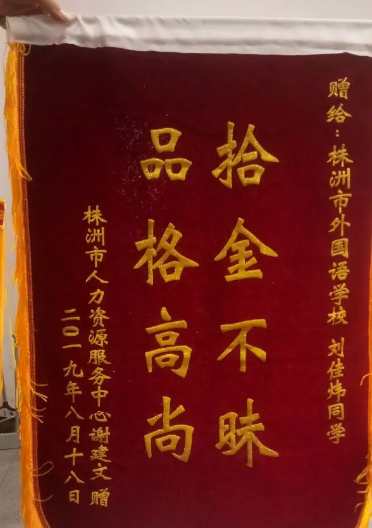 赠给：株洲市外国语学校 刘佳炜同学
拾金不昧
品格高尚
株洲市人力资源服务中心谢建文 赠
二〇一九年八月十八日